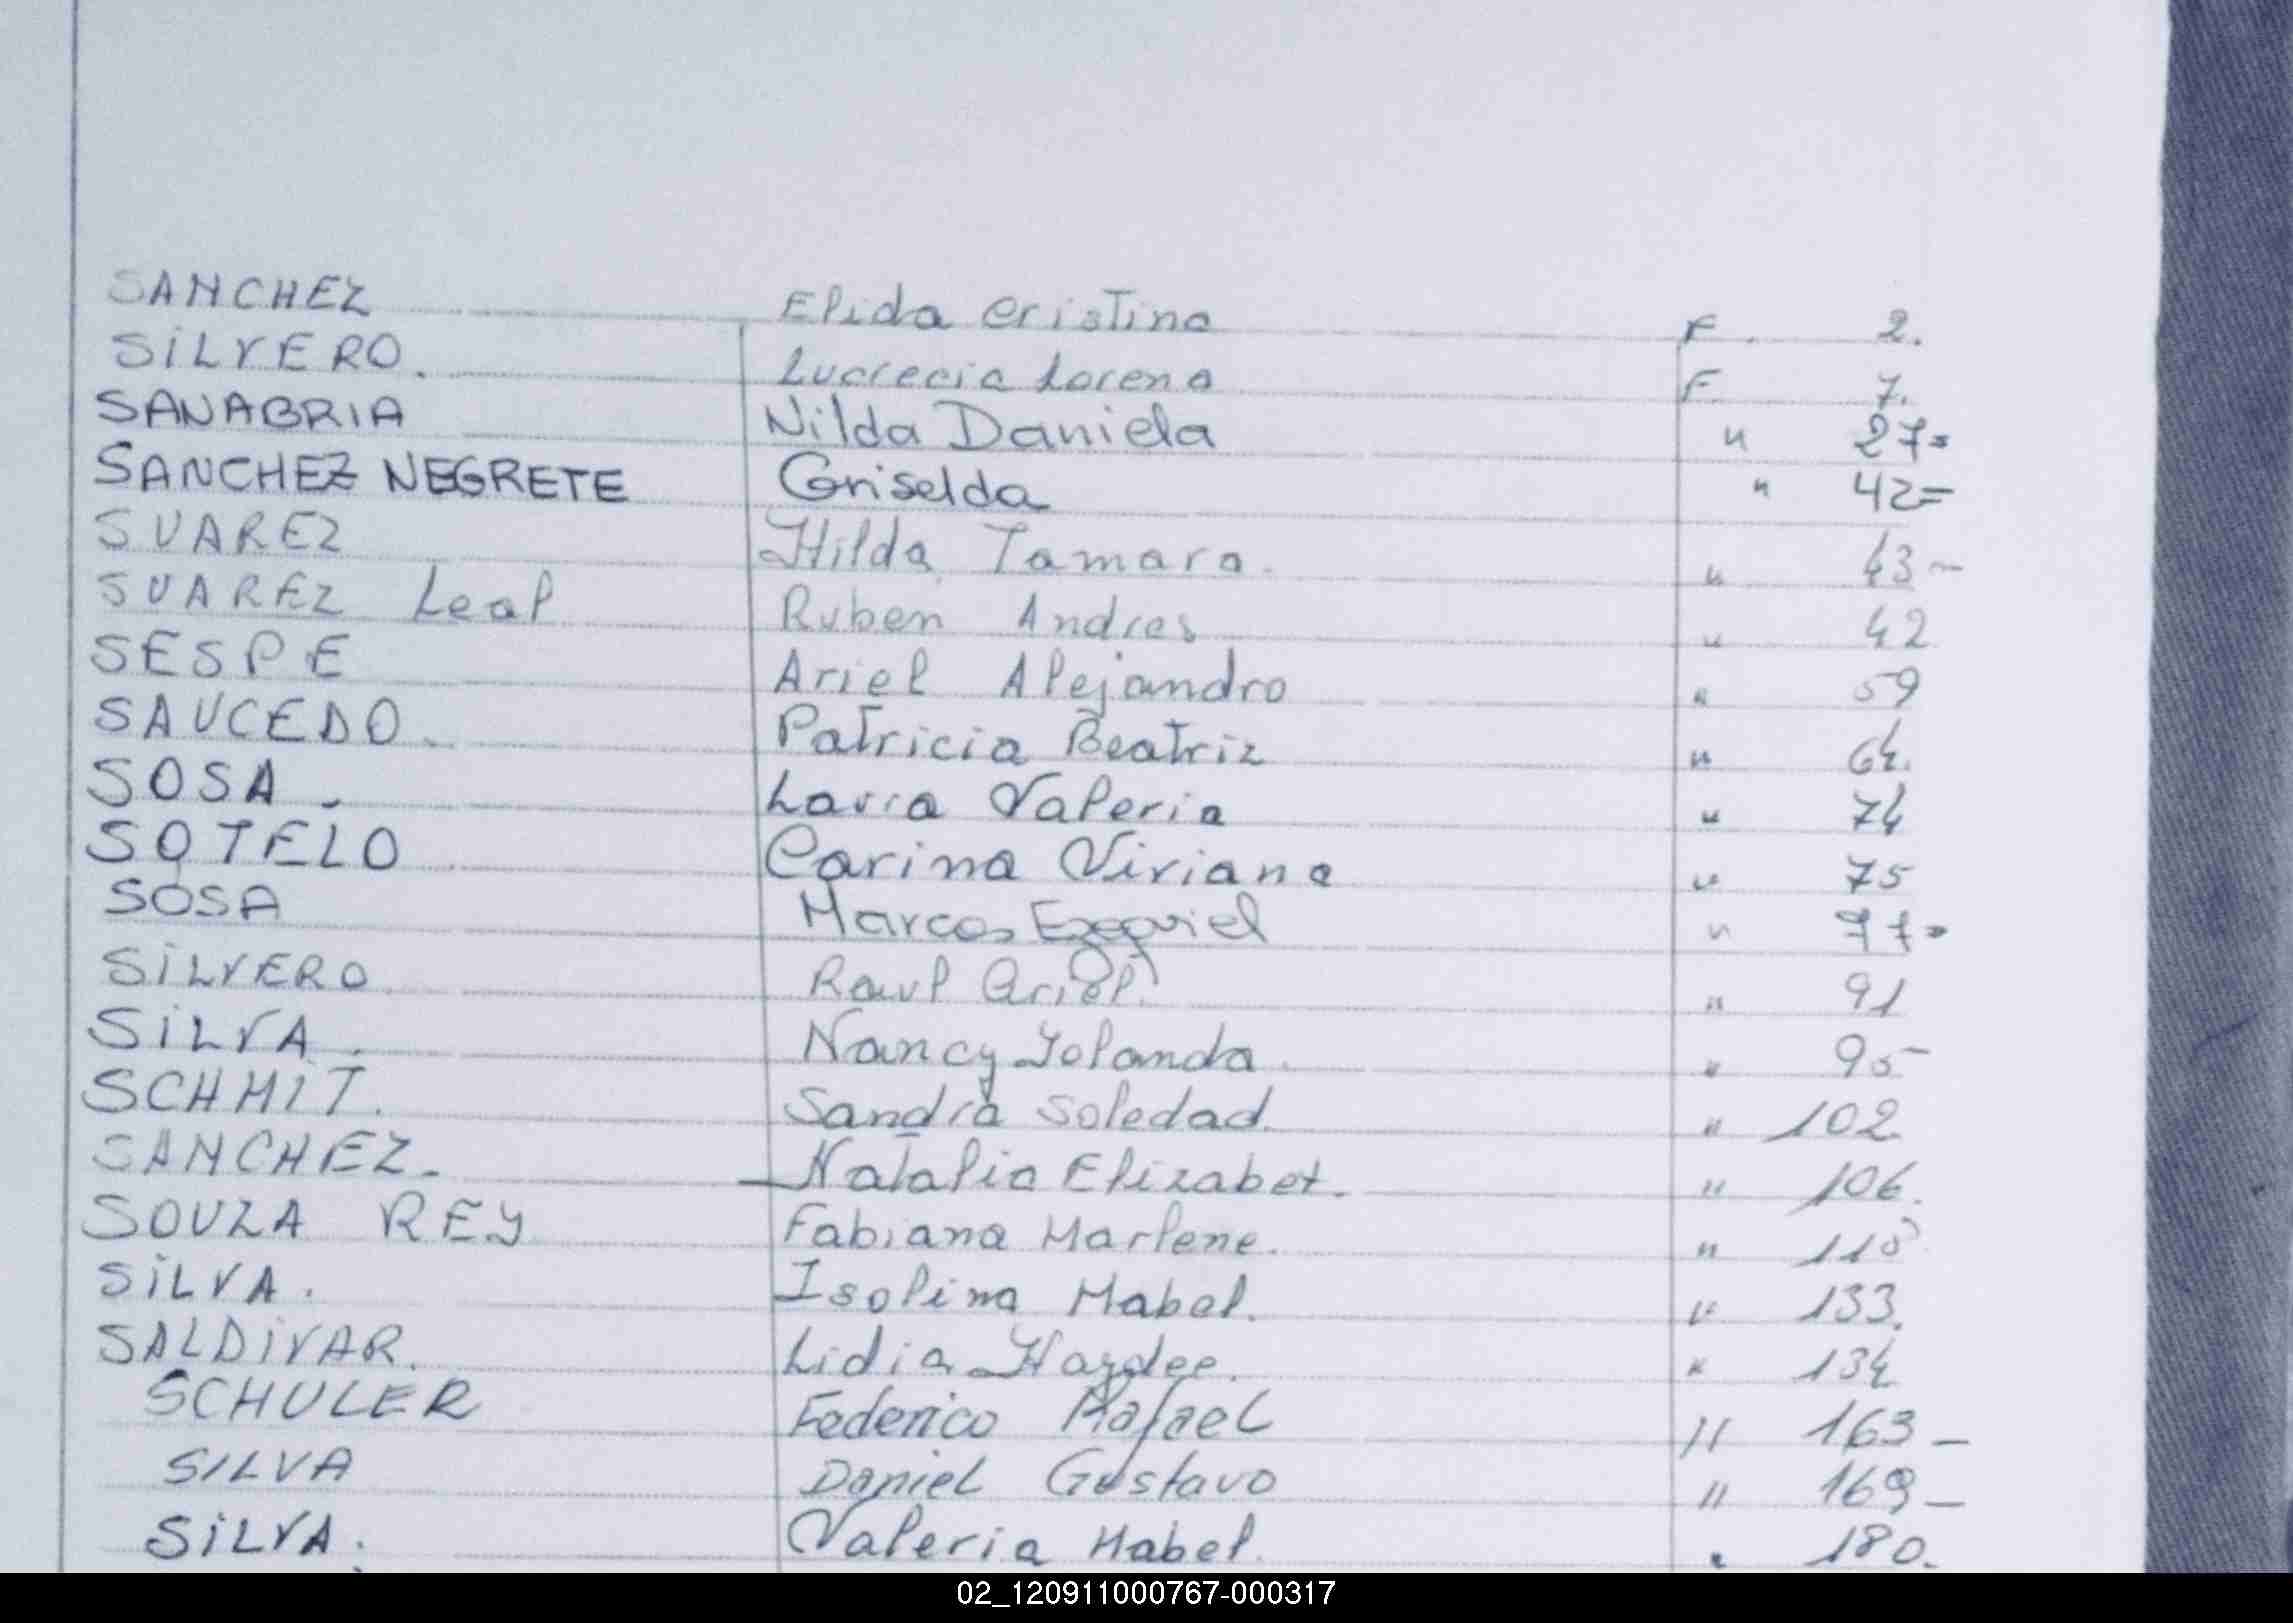 SANCHEZ Elida Cristina F. 2.
SILVERO. Lucrecia Lorena F. 7.
SANABRIA Nilda Daniela " 27=
SANCHEZ NEGRETE Griselda " 42=
SUAREZ Hilda Tamara. " 43-
SUAREZ Leal Ruben Andres " 42
SESPE Ariel Alejandro " 59
SAUCEDO. Patricia Beatriz " 64.
SOSA. Laura Valeria " 74
SOTELO Carina Viviana " 75
SOSA Marcos Ezequiel " 77=
SILVERO Raul Ariel. " 91
SILVA. Nancy Yolanda. " 95-
SCHMIT. Sandra Soledad. " 102
SANCHEZ. Natalia Elizabet. " 106.
SOUZA REY Fabiana Marlene. " 118
SILVA. Isolina Mabel. " 133.
SALDIVAR. Lidia Haydee. " 134
SCHULER Federico Rafael " 163-
SILVA Daniel Gustavo " 169-
SILVA. Valeria Mabel. " 180.
02_120911000767-000317